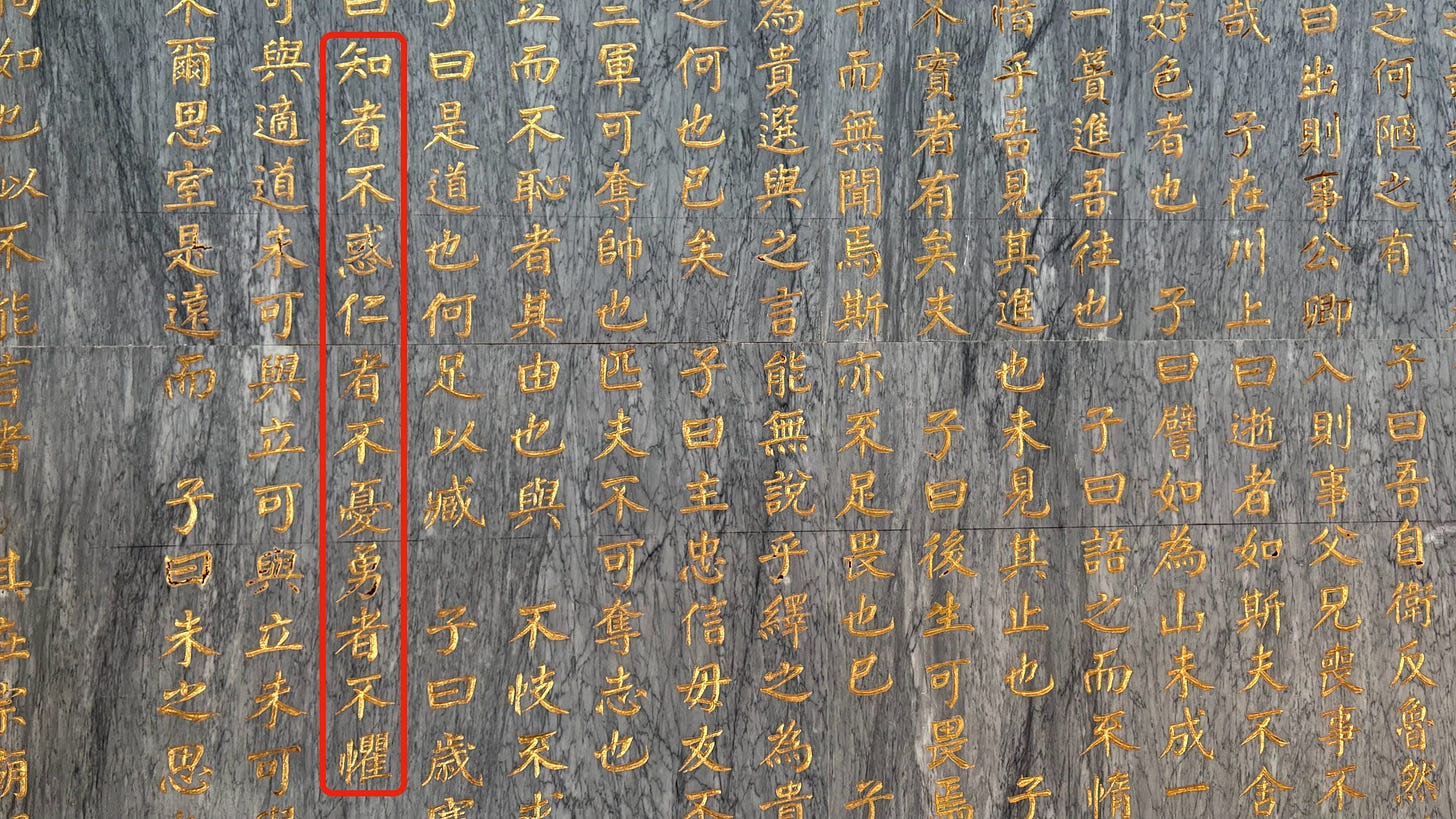 之何陋之有 子曰吾自衛反魯然
曰出則事公卿入則事父兄喪事不
哉 子在川上曰逝者如斯夫不舍
好色者也 子曰譬如為山未成一
一簣進吾往也 子曰語之而不惰
惜乎吾見其進也未見其止也 子
不實者有矣夫 子曰後生可畏焉
十而無聞焉斯亦不足畏也已 子
為貴選與之言能無說乎繹之為貴
之何也已矣 子曰主忠信毋友不
三軍可奪帥也匹夫不可奪志也
立而不恥者其由也與 不忮不求
子曰是道也何足以臧 子曰歲寒
曰知者不惑仁者不憂勇者不懼
可與適道未可與立可與立未可與
不爾思室是遠而 子曰未之思
如也似不能言者其在宗廟